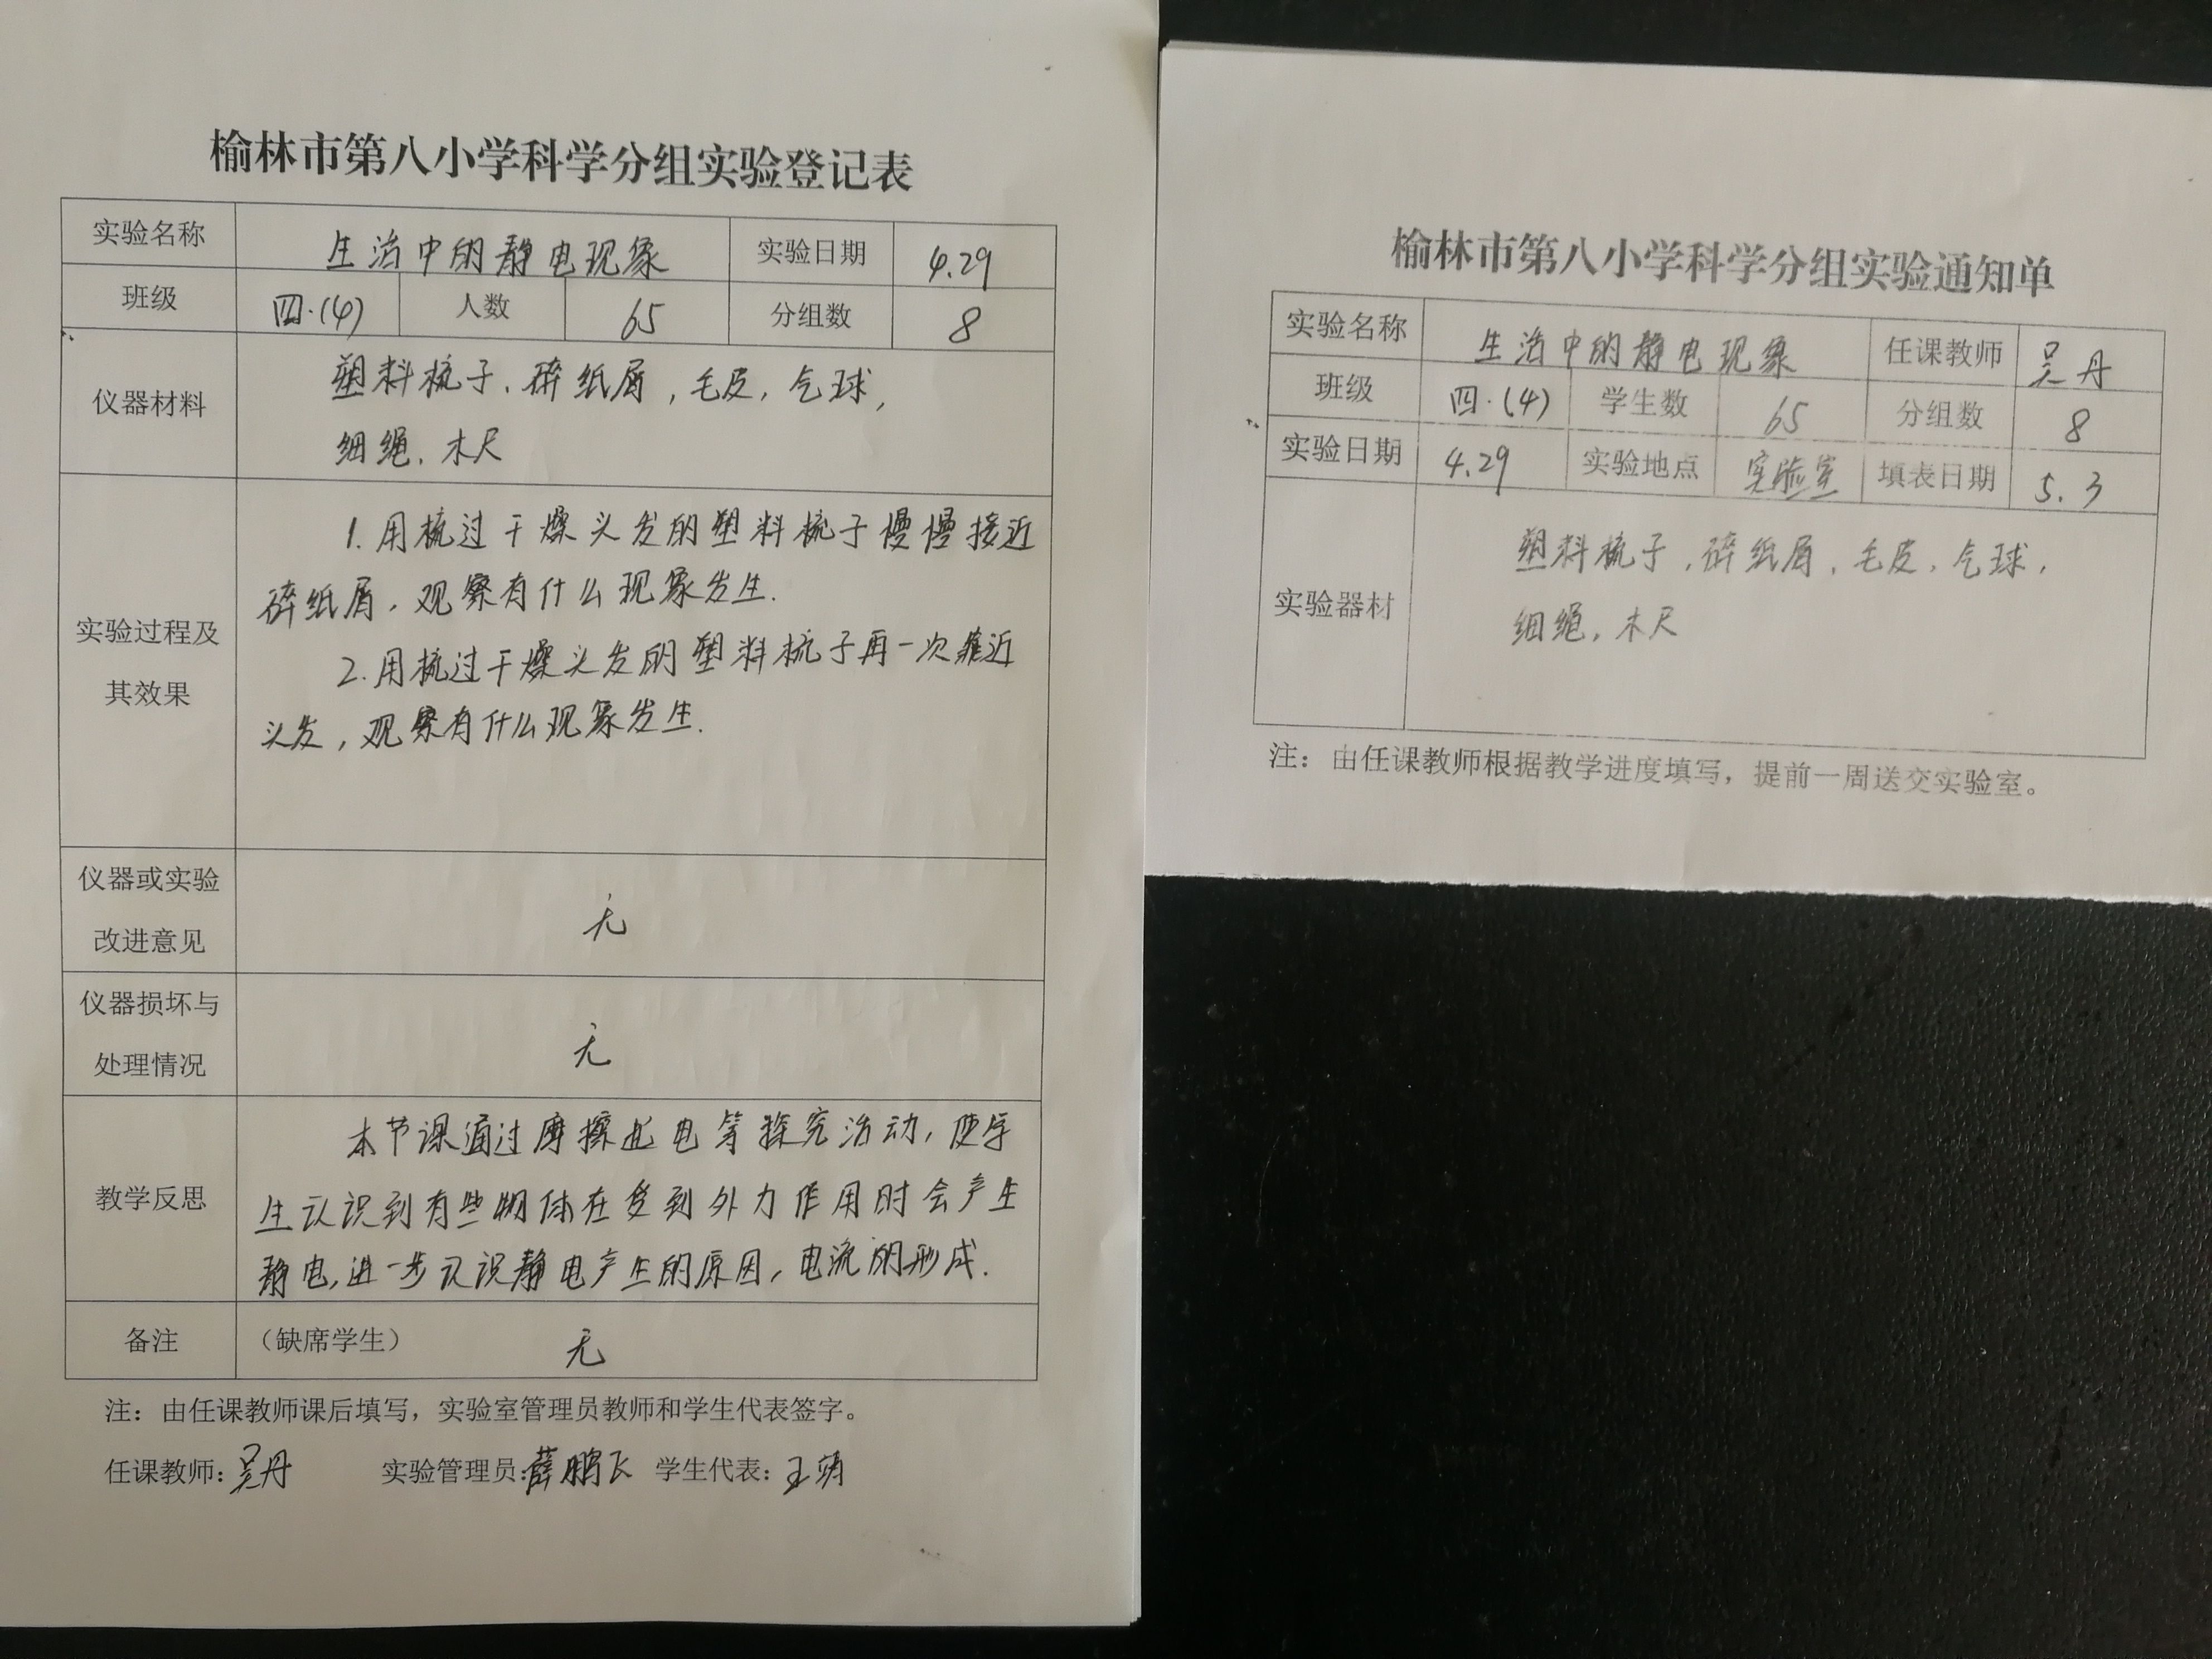 榆林市第八小学科学分组实验登记表
实验名称 生活中的静电现象 实验日期 4.29
班级 四·(4) 人数 65 分组数 8
仪器材料
塑料梳子、碎纸屑,毛皮,气球,
细绳、木尺
实验过程及
其效果
1.用梳过干燥头发的塑料梳子慢慢接近
碎纸屑,观察有什么现象发生.
2.用梳过干燥头发的塑料梳子再一次靠近
头发,观察有什么现象发生.
仪器或实验
改进意见
无
仪器损坏与
处理情况
无
教学反思
本节课通过摩擦起电等探究活动,使学
生认识到有些物体在受到外力作用时会产生
静电,进一步认识静电产生的原因,电流的形成.
备注 (缺席学生) 无
注:由任课教师课后填写,实验室管理员教师和学生代表签字。
任课教师:吴丹 实验管理员:薛鹏飞 学生代表:王
榆林市第八小学科学分组实验通知单
实验名称 生活中的静电现象 任课教师 吴丹
班级 四·(4) 学生数 65 分组数 8
实验日期 4.29 实验地点 实验室 填表日期 5.3
实验器材
塑料梳子,碎纸屑,毛皮,气球,
细绳,木尺
注:由任课教师根据教学进度填写,提前一周送交实验室。